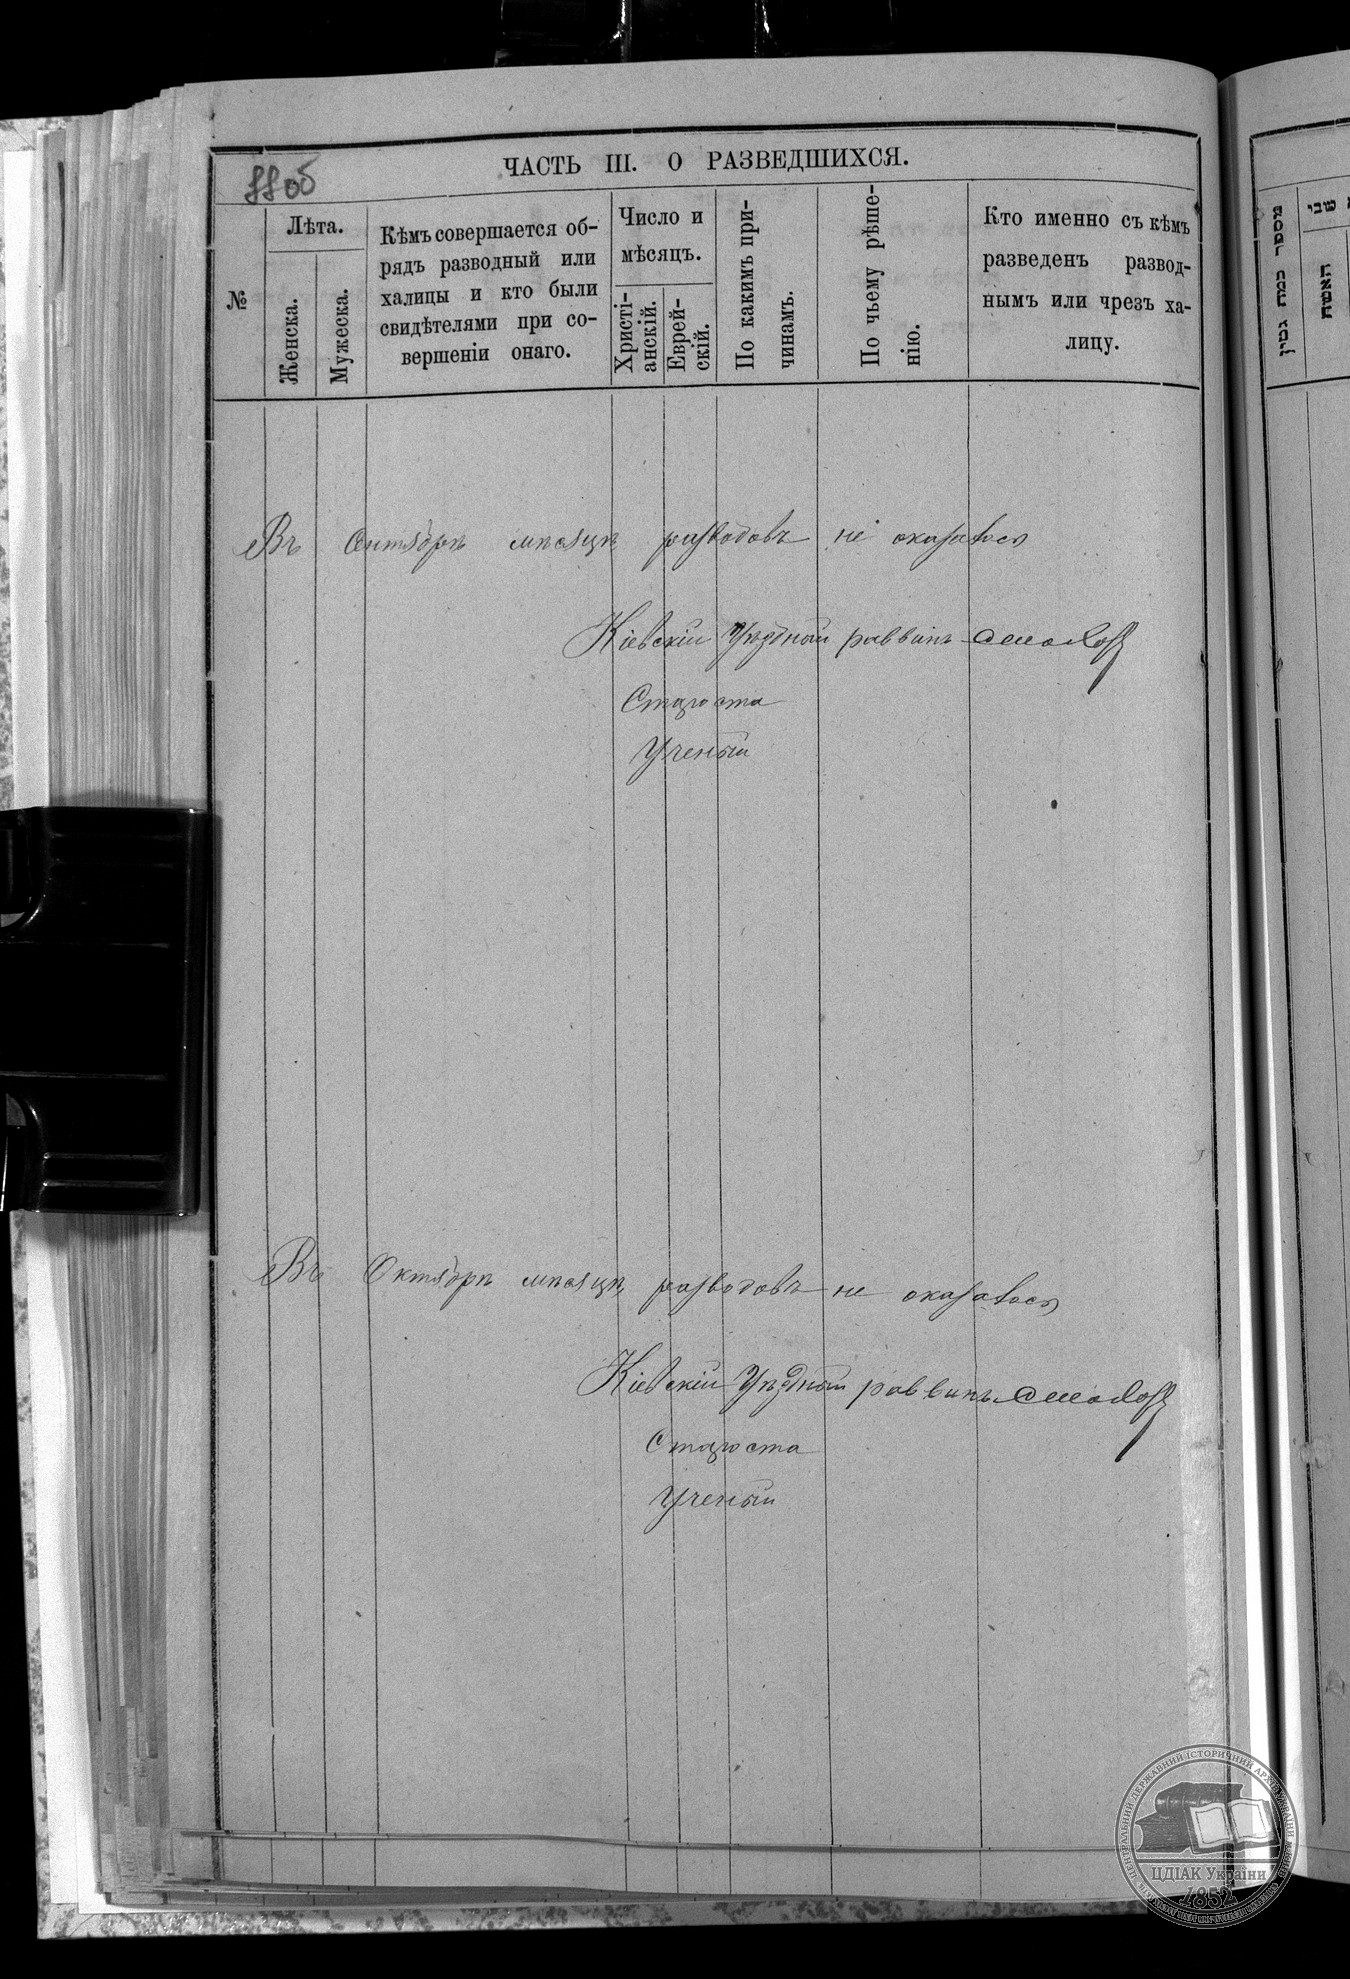 ЧАСТЬ III. О РАЗВЕДШИХСЯ.
88об
№
Лѣта.
Женска.
Мужеска.
Кѣмъ совершается об-
рядъ разводный или
халицы и кто были
свидѣтелями при со-
вершеніи онаго.
Число и
мѣсяцъ.
Христі-
анскій.
Еврей-
скій.
По какимъ при-
чинамъ.
По чьему рѣше-
нію.
Кто именно съ кѣмъ
разведенъ развод-
нымъ или чрезъ ха-
лицу.
Въ Сентябрѣ мѣсяцѣ разводовъ не оказалось
Кіевскій Уѣздный раввинъ
Староста
Ученый
Въ Октябрѣ мѣсяцѣ разводовъ не оказалось
Кіевскій Уѣздный раввинъ
Староста
Ученый
מספר כמה גטין
שני
האשה
ЦЕНТРАЛЬНИЙ ДЕРЖАВНИЙ ІСТОРИЧНИЙ АРХІВ УКРАЇНИ
ЦДІАК України
1852